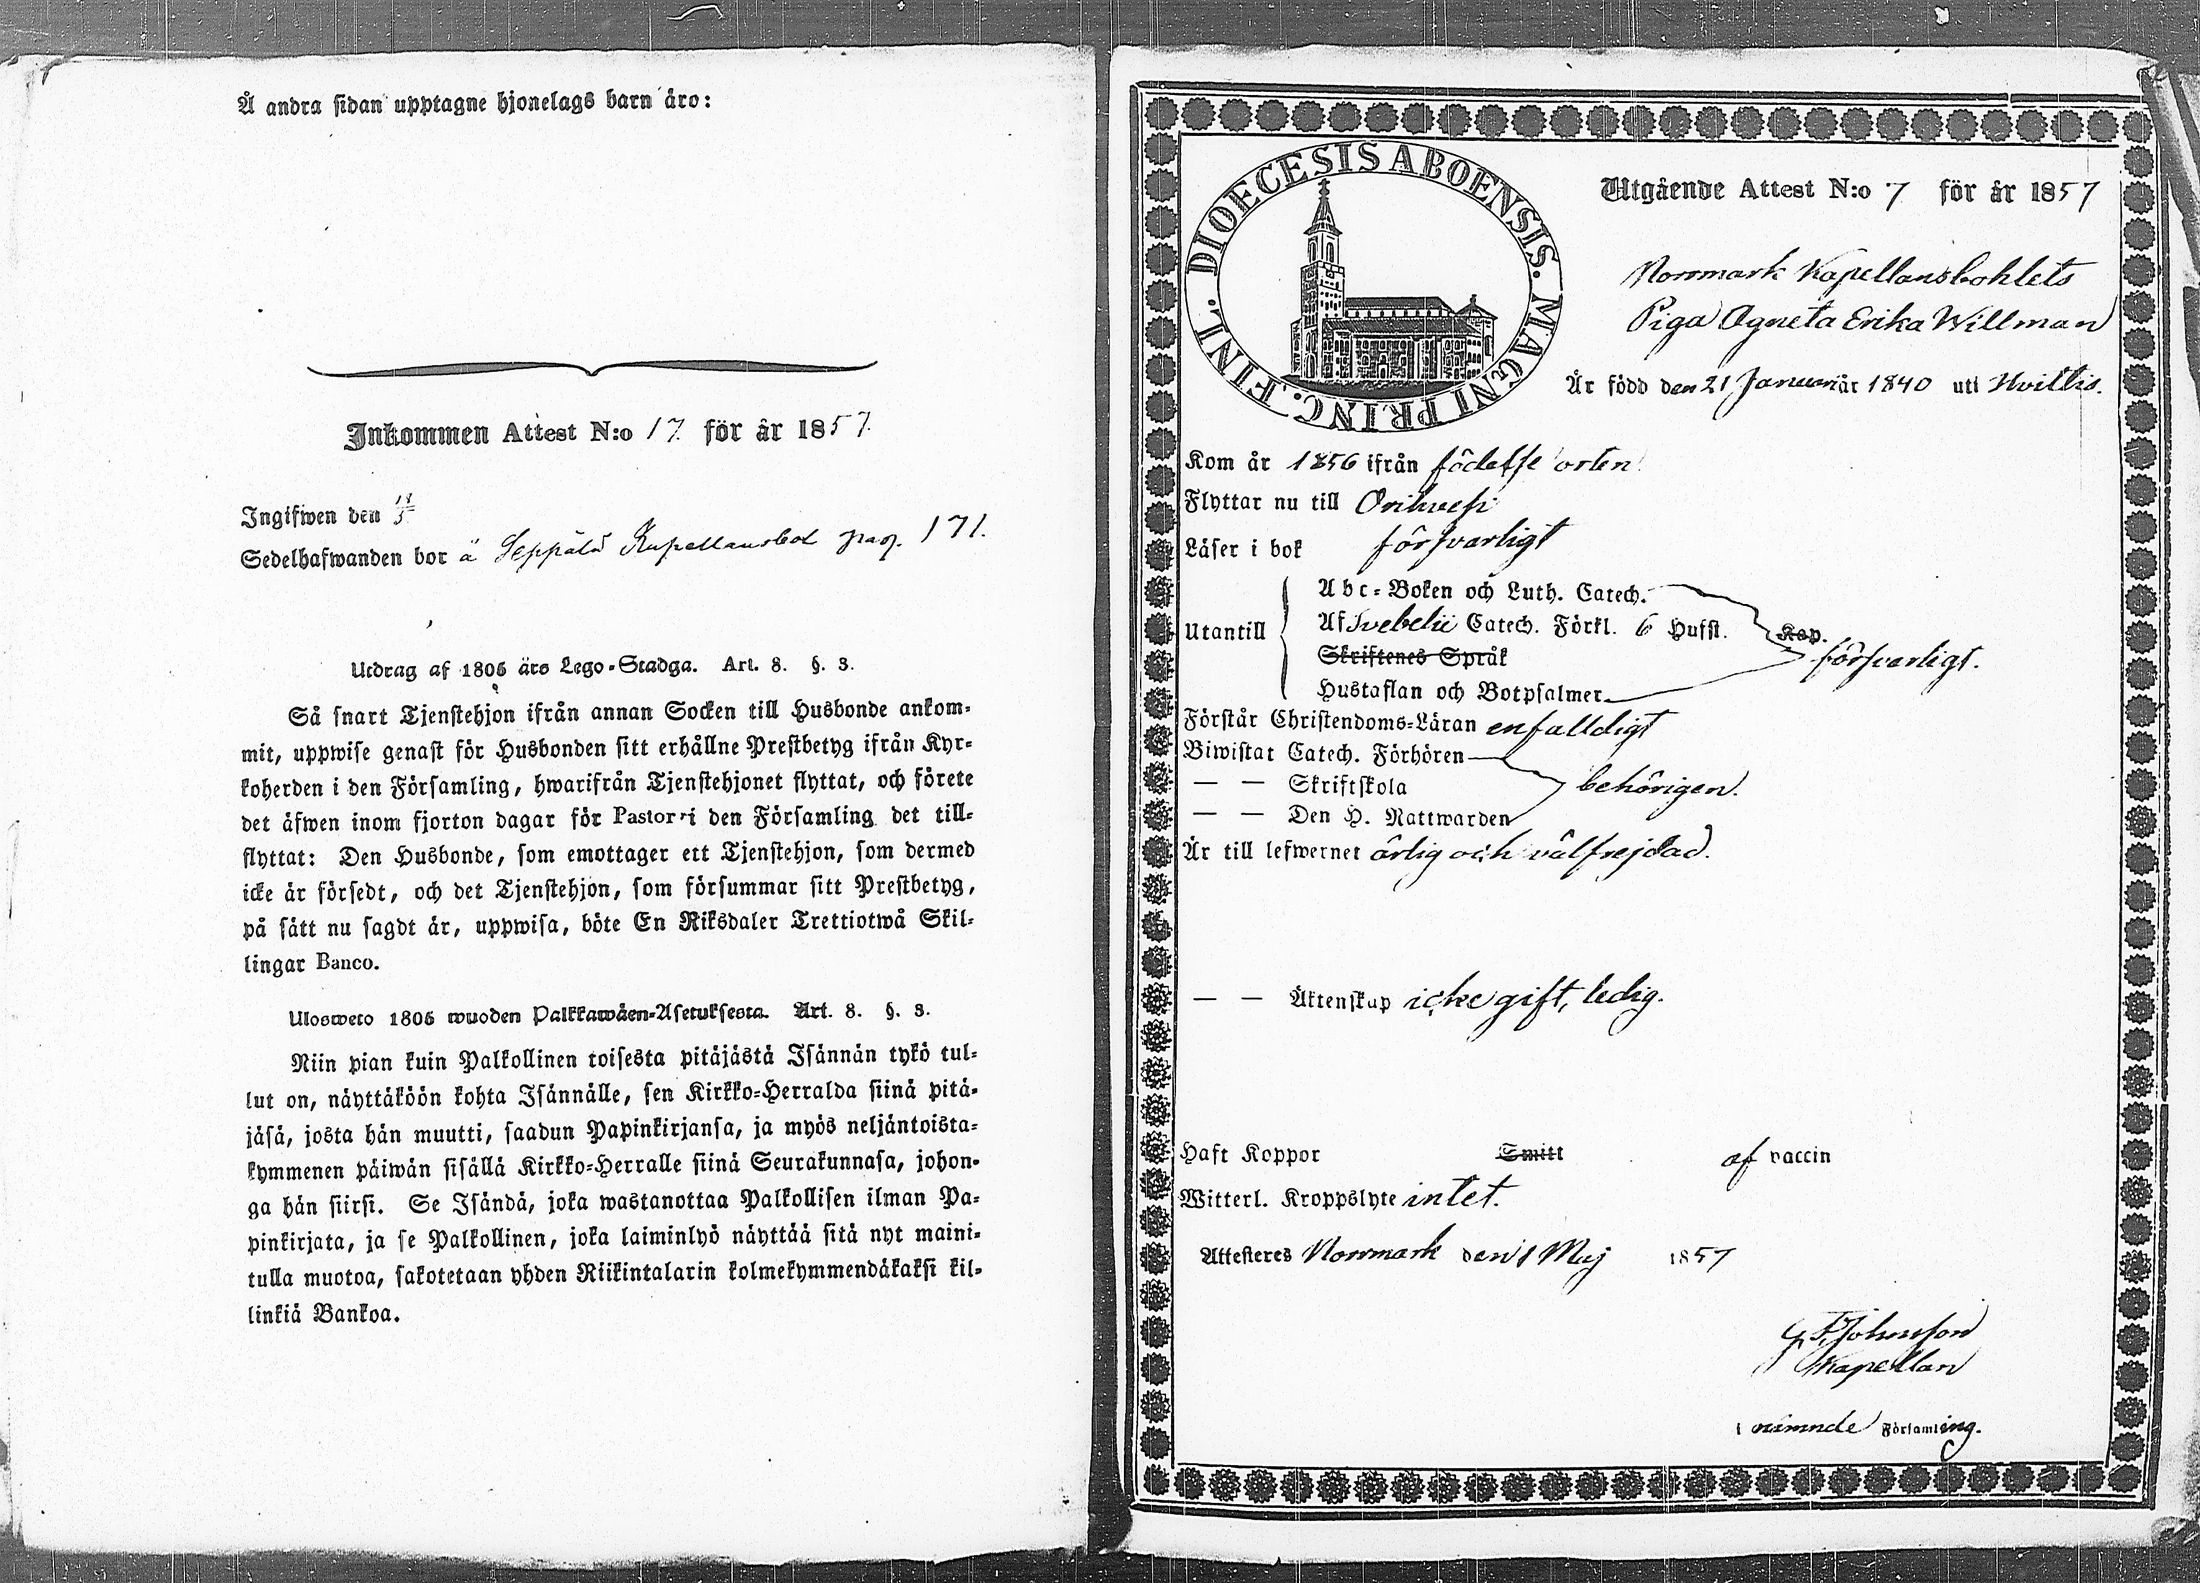 Å andra sidan upptagne hjonelags barn äro:
Inkommen Attest N:o 17. för år 1857.
Ingifwen den 18/5
Sedelhafwanden bor ä Seppälä Kapellansbol pag. 171.
Utdrag af 1805 års Lego-Stadga. Art. 8. §. 3.
Så snart Tjenstehjon ifrån annan Socken till Husbonde ankom-
mit, uppwise genast för Husbonden sitt erhållne Prestbetyg ifrån Kyr-
koherden i den Församling, hwarifrån Tjenstehjonet flyttat, och förete
det äfwen inom fjorton dagar för Pastor i den Församling det till-
flyttat: Den Husbonde, som emottager ett Tjenstehjon, som dermed
icke är försedt, och det Tjenstehjon, som försummar sitt Prestbetyg,
på sätt nu sagdt är, uppwisa, böte En Riksdaler Trettiotwå Skil-
lingar Banco.
Uloswero 1805 wuoden Palkkawäen-Asetuksesta. Art. 8. §. 3.
Niin pian kuin Palkollinen toisesta pitäjästä Isännän tykö tul-
lut on, näyttäköön kohta Isännälle, sen Kirkko-Herralda siinä pitä-
jäsä, josta hän muutti, saadun Papinkirjansa, ja myös neljäntoista-
kymmenen päiwän sisällä Kirkko-Herralle siinä Seurakunnasa, johon-
ga hän siirsi. Se Isändä, joka wastanottaa Palkollisen ilman Pa-
pinkirjata, ja se Palkollinen, joka laiminlyö näyttää sitä nyt maini-
tulla muotoa, sakotetaan yhden Riikintalarin kolmekymmendäkaksi kil-
linkiä Bankoa.
DIOECESIS ABOENSIS. MAGNI PRINC. FINL.
Utgående Attest N:o 7 för år 1857
Norrmark Kapellansbohlets
Piga Agneta Erika Willman
Är född den 21 Januari år 1840 uti Hvittis.
Kom år 1856 ifrån födelse orten
Flyttar nu till Orihvesi
Läser i bok försvarligt
Utantill
Abc-Boken och Luth. Catech.
Af Svebelii Catech. Förkl. 6 Hufst. Kap.
Skriftenes Språk
försvarligt.
Hustaflan och Botpsalmer
Förstår Christendoms-Läran enfalldigt
Biwistat Catech. Förhören
— — Skriftskola behörigen.
— — Den H. Nattwarden
Är till lefwernet ärlig och välfrejdad.
— — Äktenskap icke gift, ledig.
Haft Koppor Smitt af vaccin
Witterl. Kroppslyte intet.
Attesteres Norrmark den 1 Maj 1857
G F Johnsson
Kapellan
i nämnde Församling.